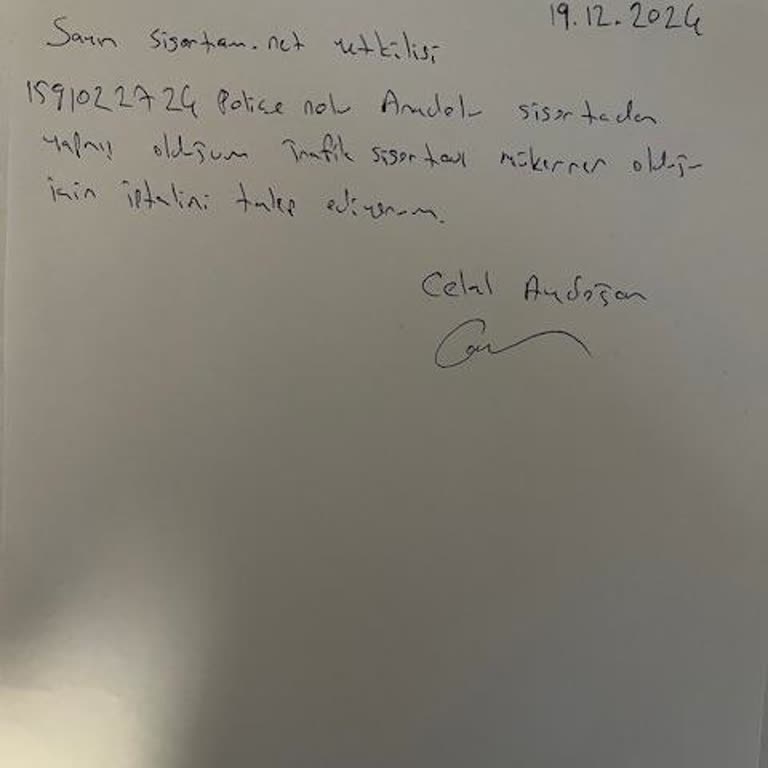 19.12.2024
Sayın sigortam.net yetkilisi
1591022724 Poliçe nolu Anadolu sigortadan
yapmış olduğum Trafik sigortası mükerrer olduğu
için iptalini talep ediyorum.
Celal Aydoğan